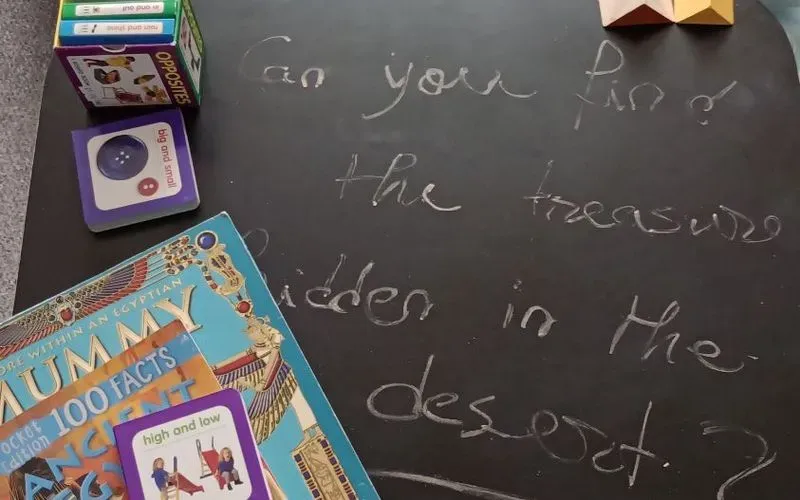 in and out
rain and shine
OPPOSITES
big and small
Can you find
the treasure
hidden in the
desert?
ORE WITHIN AN EGYPTIAN
MUMMY
100 FACTS
ocket
edition
ANCIENT
high and low